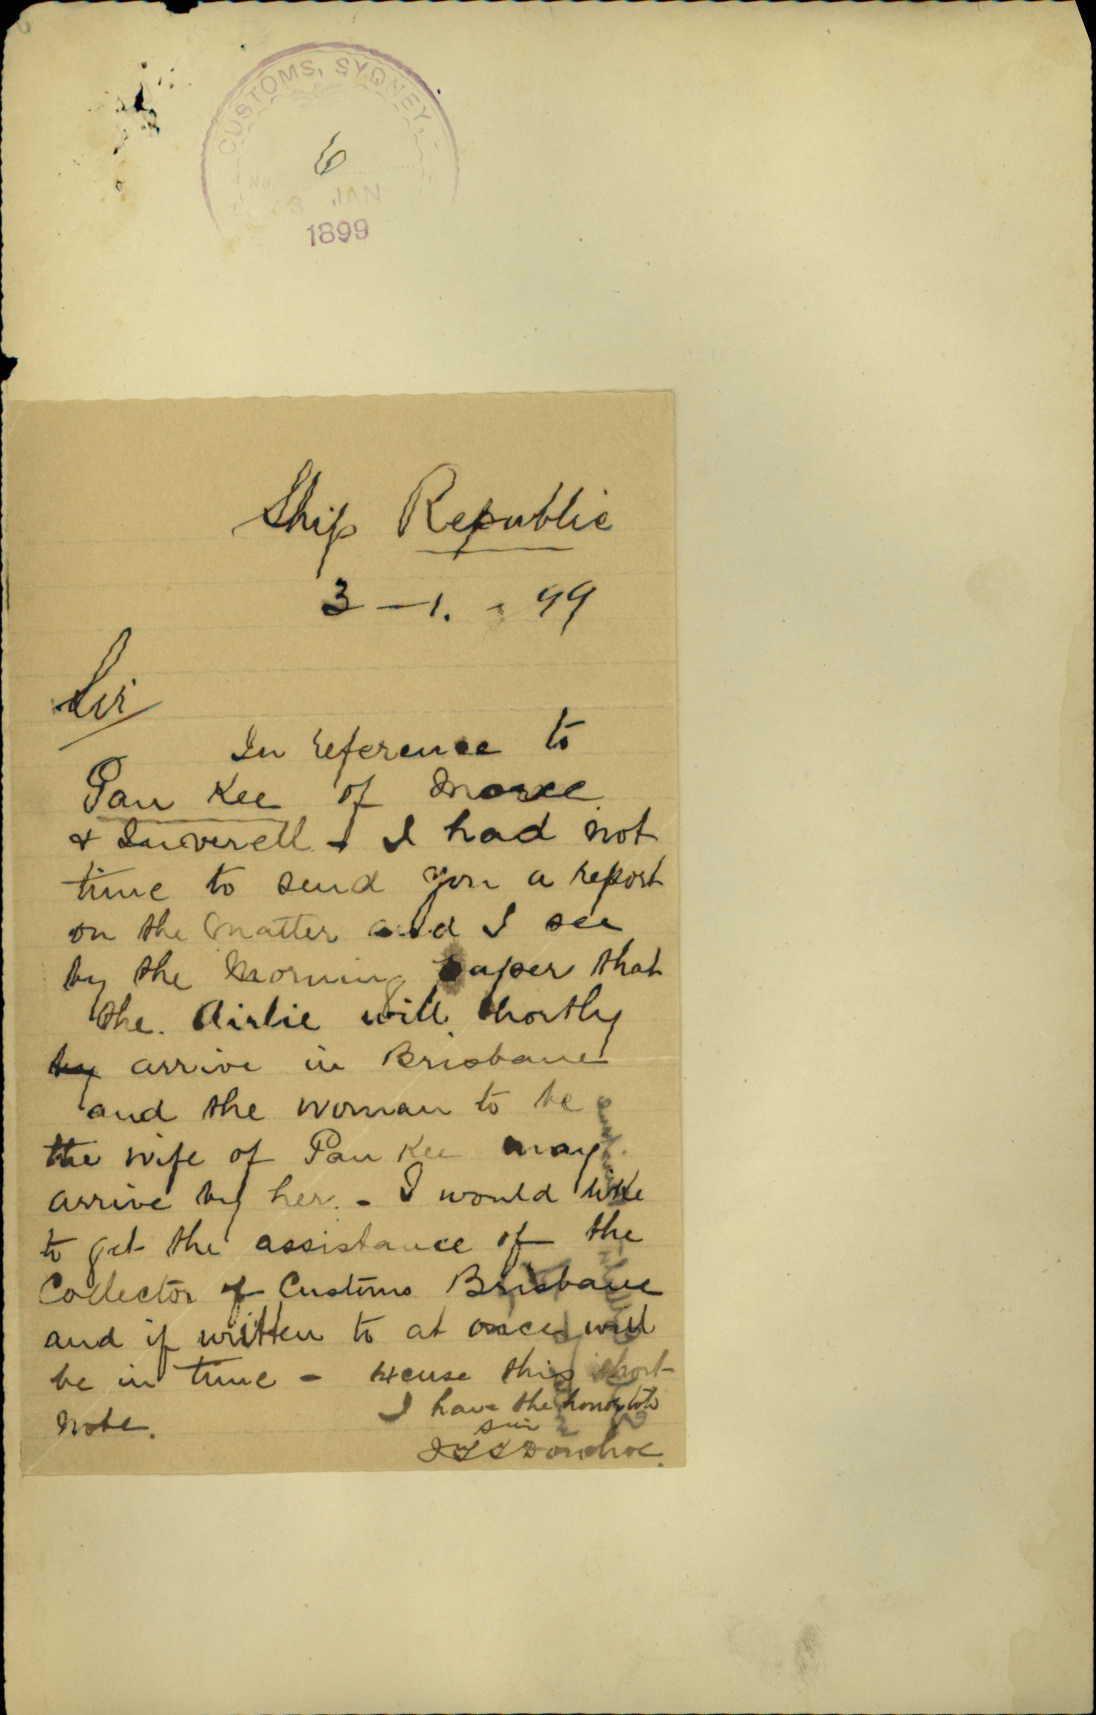 CUSTOMS, SYDNEY.
6
No.
3 JAN
1899
Ship Republic
3 - 1. - 99
Sir
In reference to
Pan Kee of Moree
& Inverell - I had not
time to send you a report
on the matter and I see
by the Morning paper that
the. Airlie will shortly
by arrive in Brisbane
and the woman to be
the wife of Pan Kee may
arrive by her. - I would like
to get the assistance of the
Collector of Customs Brisbane
and if written to at once will
be in time - excuse this short
note.
I have the honor to be
Sir
Donohoe.